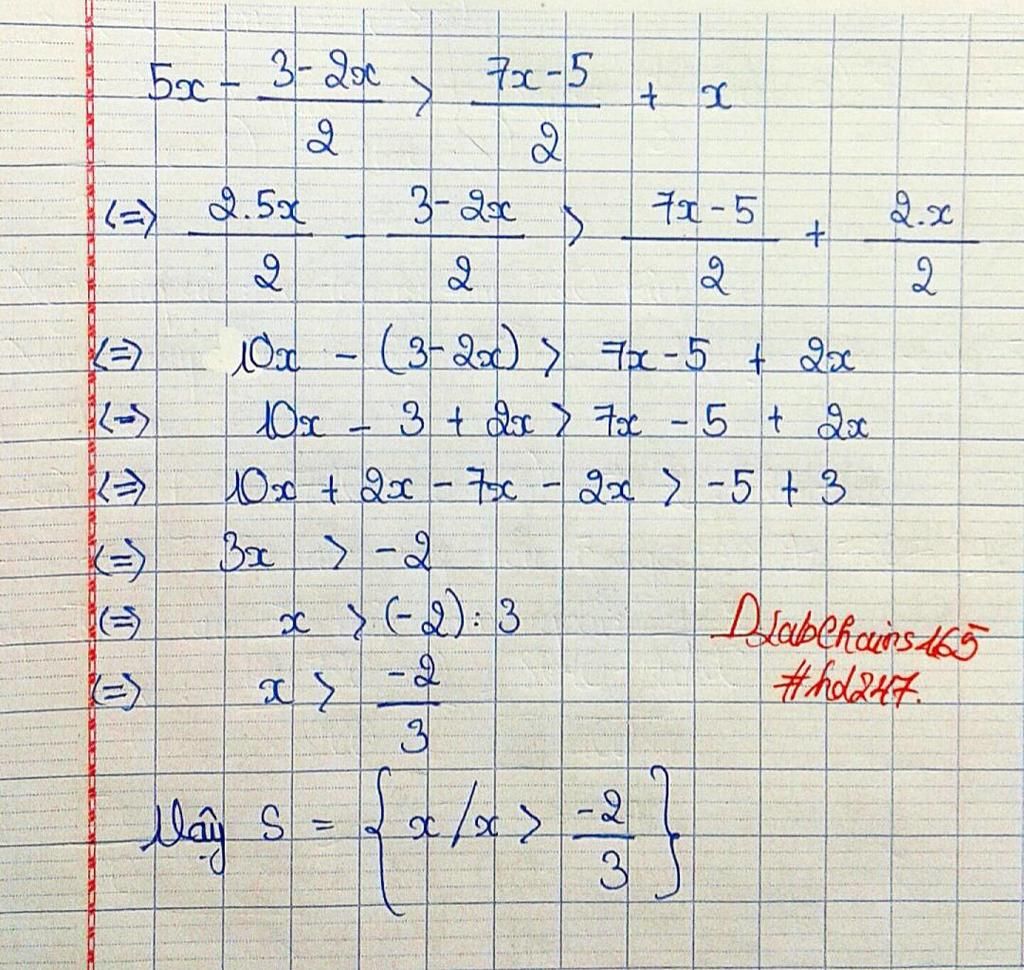 5x - \frac{3-2x}{2} > \frac{7x-5}{2} + x
<=> \frac{2.5x}{2} - \frac{3-2x}{2} > \frac{7x-5}{2} + \frac{2.x}{2}
<=> 10x - (3-2x) > 7x-5 + 2x
<=> 10x - 3 + 2x > 7x - 5 + 2x
<=> 10x + 2x - 7x - 2x > -5 + 3
<=> 3x > -2
<=> x > (-2) : 3
<=> x > \frac{-2}{3}
Vậy S = { x / x > \frac{-2}{3} }
#hd247.